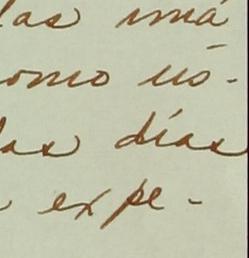 las imá
como nó-
las días
expe-